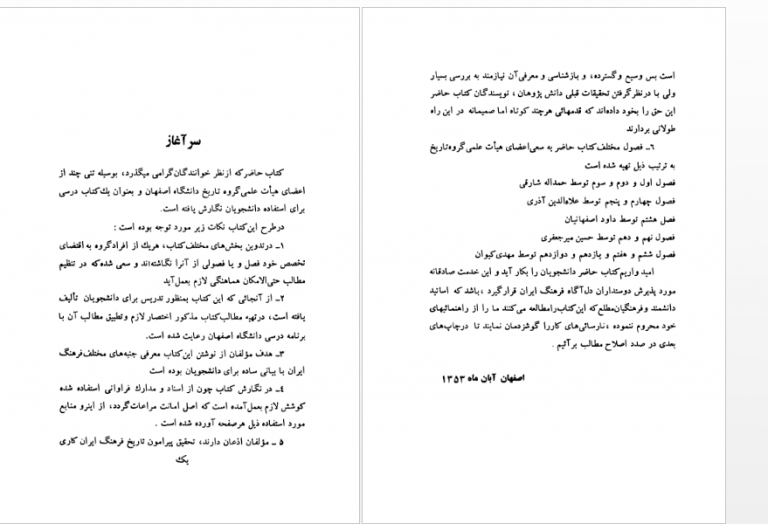 سرآغاز
کتاب حاضر که ازنظر خوانندگان گرامی میگذرد، بوسیله تنی چند از
اعضای هیأت علمی گروه تاریخ دانشگاه اصفهان و بعنوان یك کتاب درسی
برای استفاده دانشجویان نگارش یافته است.
درطرح این کتاب نکات زیر مورد توجه بوده است :
۱ـ درتدوین بخش‌های مختلف کتاب، هریك از افرادگروه به اقتضای
تخصص خود فصل و یا فصولی از آنرا نگاشته‌اند و سعی شده که در تنظیم
مطالب حتی‌الامکان هماهنگی لازم بعمل آید
۲ـ از آنجائی که این کتاب بمنظور تدریس برای دانشجویان تألیف
یافته است، درتهیه مطالب کتاب مذکور اختصار لازم وتطبیق مطالب آن با
برنامه درسی دانشگاه اصفهان رعایت شده است.
۳ـ هدف مؤلفان از نوشتن این کتاب معرفی جنبه‌های مختلف فرهنگ
ایران با بیانی ساده برای دانشجویان بوده است
۴ـ در نگارش کتاب چون از اسناد و مدارك فراوانی استفاده شده
کوشش لازم بعمل آمده است که اصل امانت مراعات گردد، از اینرو منابع
مورد استفاده ذیل هرصفحه آورده شده است .
۵ ـ مؤلفان اذعان دارند، تحقیق پیرامون تاریخ فرهنگ ایران کاری
یك
است بس وسیع وگسترده، و بازشناسی و معرفی آن نیازمند به بررسی بسیار
ولی با درنظرگرفتن تحقیقات قبلی دانش پژوهان ، نویسندگان کتاب حاضر
این حق را بخود داده‌اند که قدمهائی هرچند کوتاه اما صمیمانه در این راه
طولانی بردارند
۶ـ فصول مختلف کتاب حاضر به سعی اعضای هیأت علمی گروه تاریخ
به ترتیب ذیل تهیه شده است
فصول اول و دوم و سوم توسط حمداله شارقی
فصول چهارم و پنجم توسط علاءالدین آذری
فصل هشتم توسط داود اصفهانیان
فصول نهم و دهم توسط حسین میرجعفری
فصول ششم و هفتم و یازدهم و دوازدهم توسط مهدی کیوان
امید واریم کتاب حاضر دانشجویان را بکار آید و این خدمت صادقانه
مورد پذیرش دوستداران دل‌آگاه فرهنگ ایران قرارگیرد ، باشد که اساتید
دانشمند وفرهنگیان مطلع که این کتاب را مطالعه می‌کنند ما را از راهنمائیهای
خود محروم ننموده ، نارسائی‌های کاررا گوشزدمان نمایند تا درچاپ‌های
بعدی در صدد اصلاح مطالب برآئیم .
اصفهان آبان ماه ۱۳۵۳